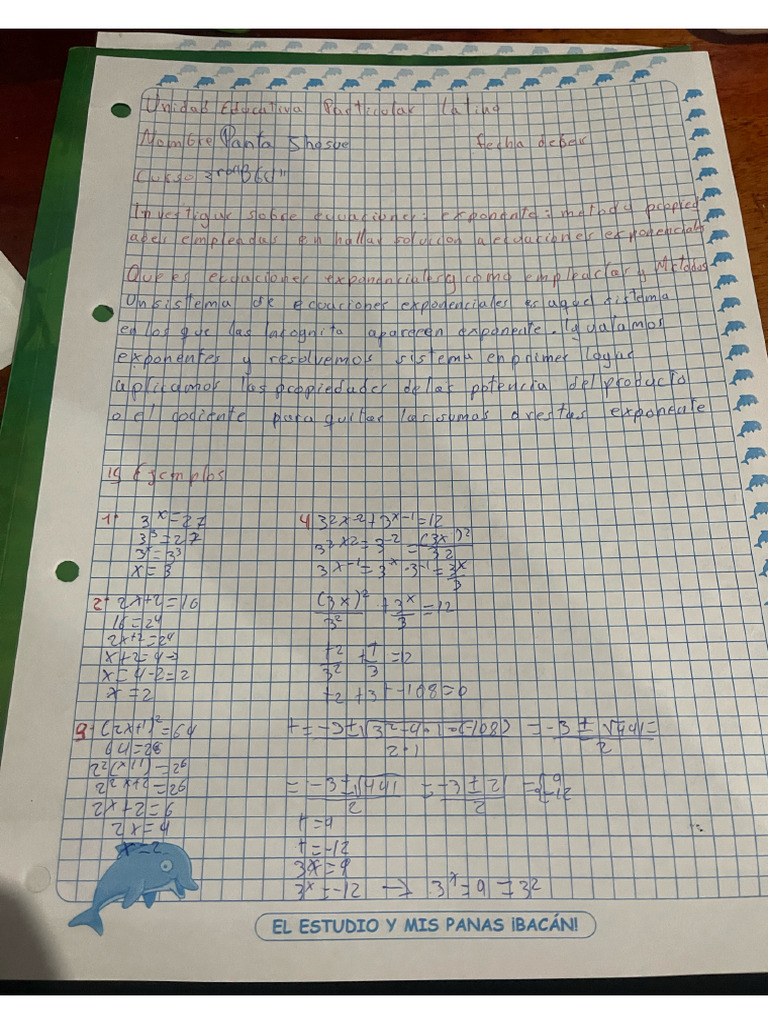 Unidad Educativa Particular Latino
Nombre Panta Shosue fecha deber
Curso 3ro
Investigar sobre ecuaciones: exponente: metodo propied
ades empleadas en hallar solucion a ecuaciones exponenciales
Que es ecuaciones exponenciales y como emplearlas y Metodos
Un sistema de ecuaciones exponenciales es aquel sistema
en los que las incognita aparecen exponente. Igualamos
exponentes y resolvemos sistema en primer lugar
aplicamos las propiedades de las potencia del producto
o el cociente para quitar las sumas o restas exponente
15 Ejemplos
1- 3^x=27
3^3=27
3^x=3^3
x=3
2- 2x+2=16
16=2^4
2^x+2=2^4
x+2=4→
x=4-2=2
x=2
3- (2x+1)^2=64
64=2^6
2^2(x+1)=2^6
2^2x+2=2^6
2x+2=6
2x=4
x=2
4 3^2x-2+3^x-1=12
3^2x2=3^-2=(3x)^2/3^2
3^x-1=3^x·3^-1=3^x/3
(3x)^2/3^2+3^x/3=12
t^2/3^2+t/3=12
t^2+3t-108=0
t=-3±√3^2-4·1·(-108)/2·1 =-3±√441=/2
=-3±√441/2 =-3±21/2 ={9 -12
t=9
t=-12
3^x=9
3^x=-12 → 3^x=9=3^2
EL ESTUDIO Y MIS PANAS ¡BACÁN!